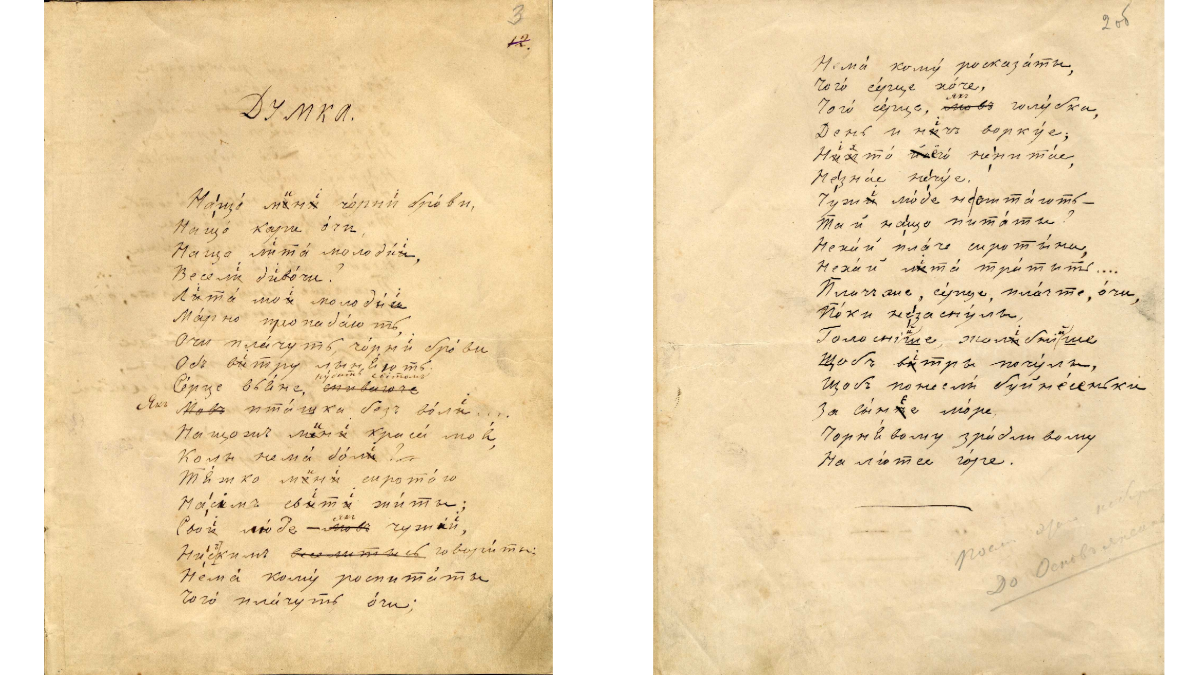 3
12.
Думка.
На́що мѣнѣ чо́рнӣ бро́ви,
На́що кари о́чи,
На́що лѣта́ молодѣи,
Веселѣ дѣво́чи?
Лѣта́ моѣ молодѣи
Ма́рно пропада́ють,
Очи пла́чуть, чо́рнӣ бро́ви
Одъ вѣтру лыня́ють.
нудить свѣтомъ
Се́рце вья́не,
Якъ Мовъ пта́шка безъ во́лѣ....
На́щожъ мѣнѣ краса́ моя́,
Колы́ нема́ до́лѣ?
Тя́жко мѣнѣ сирото́ю
На сѣмъ свѣтѣ жи́ты;
якъ
Своѣ лю́де – мовъ чужѣи,
Нискимъ говори́ты;
Нема́ кому́ роспита́ты
Чого́ пла́чуть о́чи;
2 об
Нема́ кому́ росказа́ты,
Чого́ се́рце хо́че,
якъ
Чого́ се́рце, мовъ голу́бка,
День и нѣчъ ворку́е;
Нѣхто́ його́ непита́е,
Незна́е нечу́е.
Чужѣ лю́де неспита́ють –
Та й на́що пита́ты?
Неха́й пла́че сироты́на,
Неха́й лѣта́ тра́тить....
Плачъ же, се́рце, пла́чте, о́чи,
По́ки незасну́лы,
Голоснѣше, жалѣбнѣше
Щобъ вѣтры почу́лы,
Щобъ понеслы́ буйне́сенькы
За сы́нѣе мо́ре
Чорня́вому зра́дливому
На лю́тее го́ре.
До Основьяненка